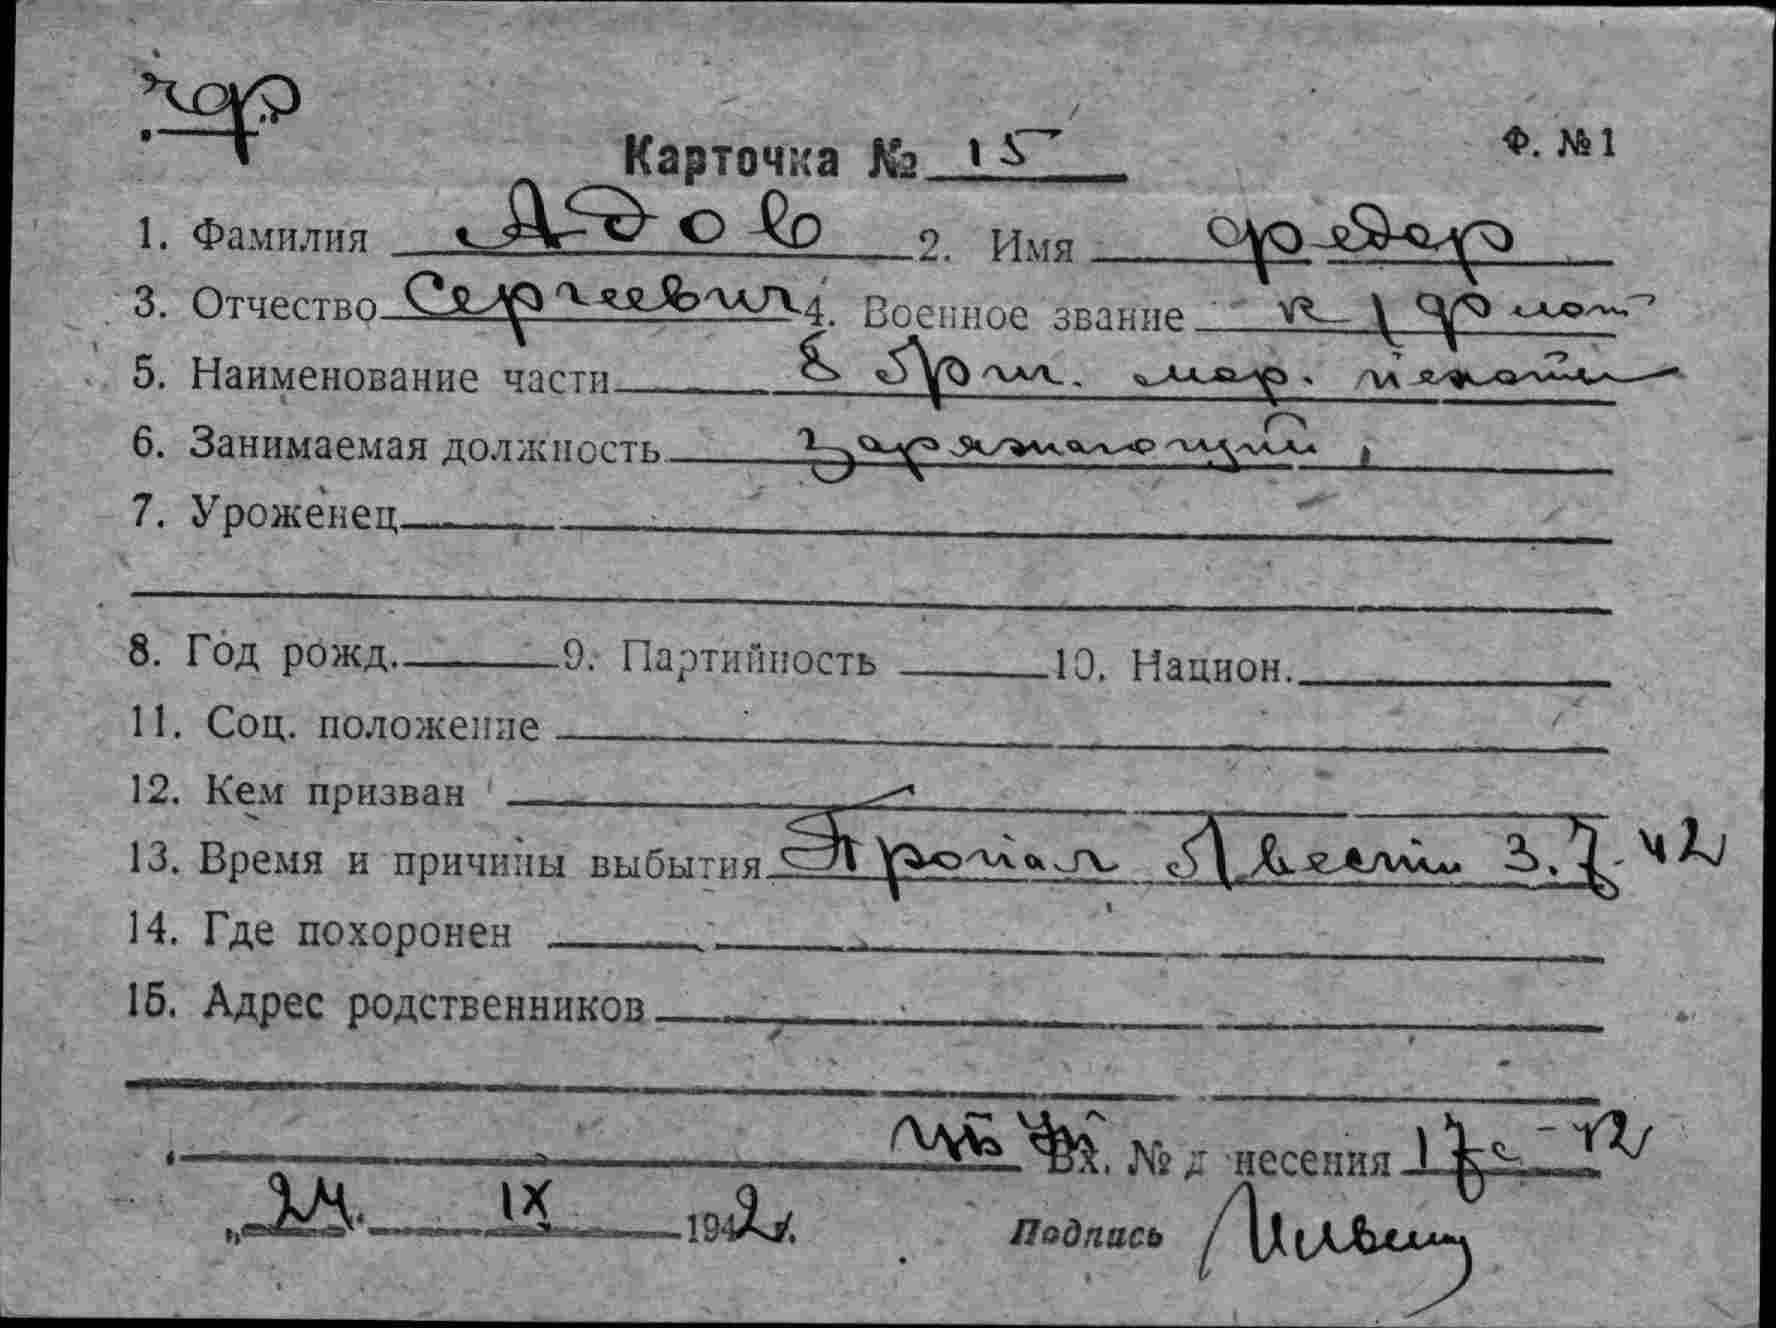 чф
Карточка № 15 Ф. № 1
1. Фамилия Адов 2. Имя Федор
3. Отчество Сергеевич 4. Военное звание к/флот
5. Наименование части 8 бриг. мор. пехоты
6. Занимаемая должность заряжающий
7. Уроженец
8. Год рожд. 9. Партийность 10. Национ.
11. Соц. положение
12. Кем призван
13. Время и причины выбытия Пропал б вести 3.7.42
14. Где похоронен
15. Адрес родственников
Вх. № д несения 17с-42
„24. IX 1942г.
Подпись